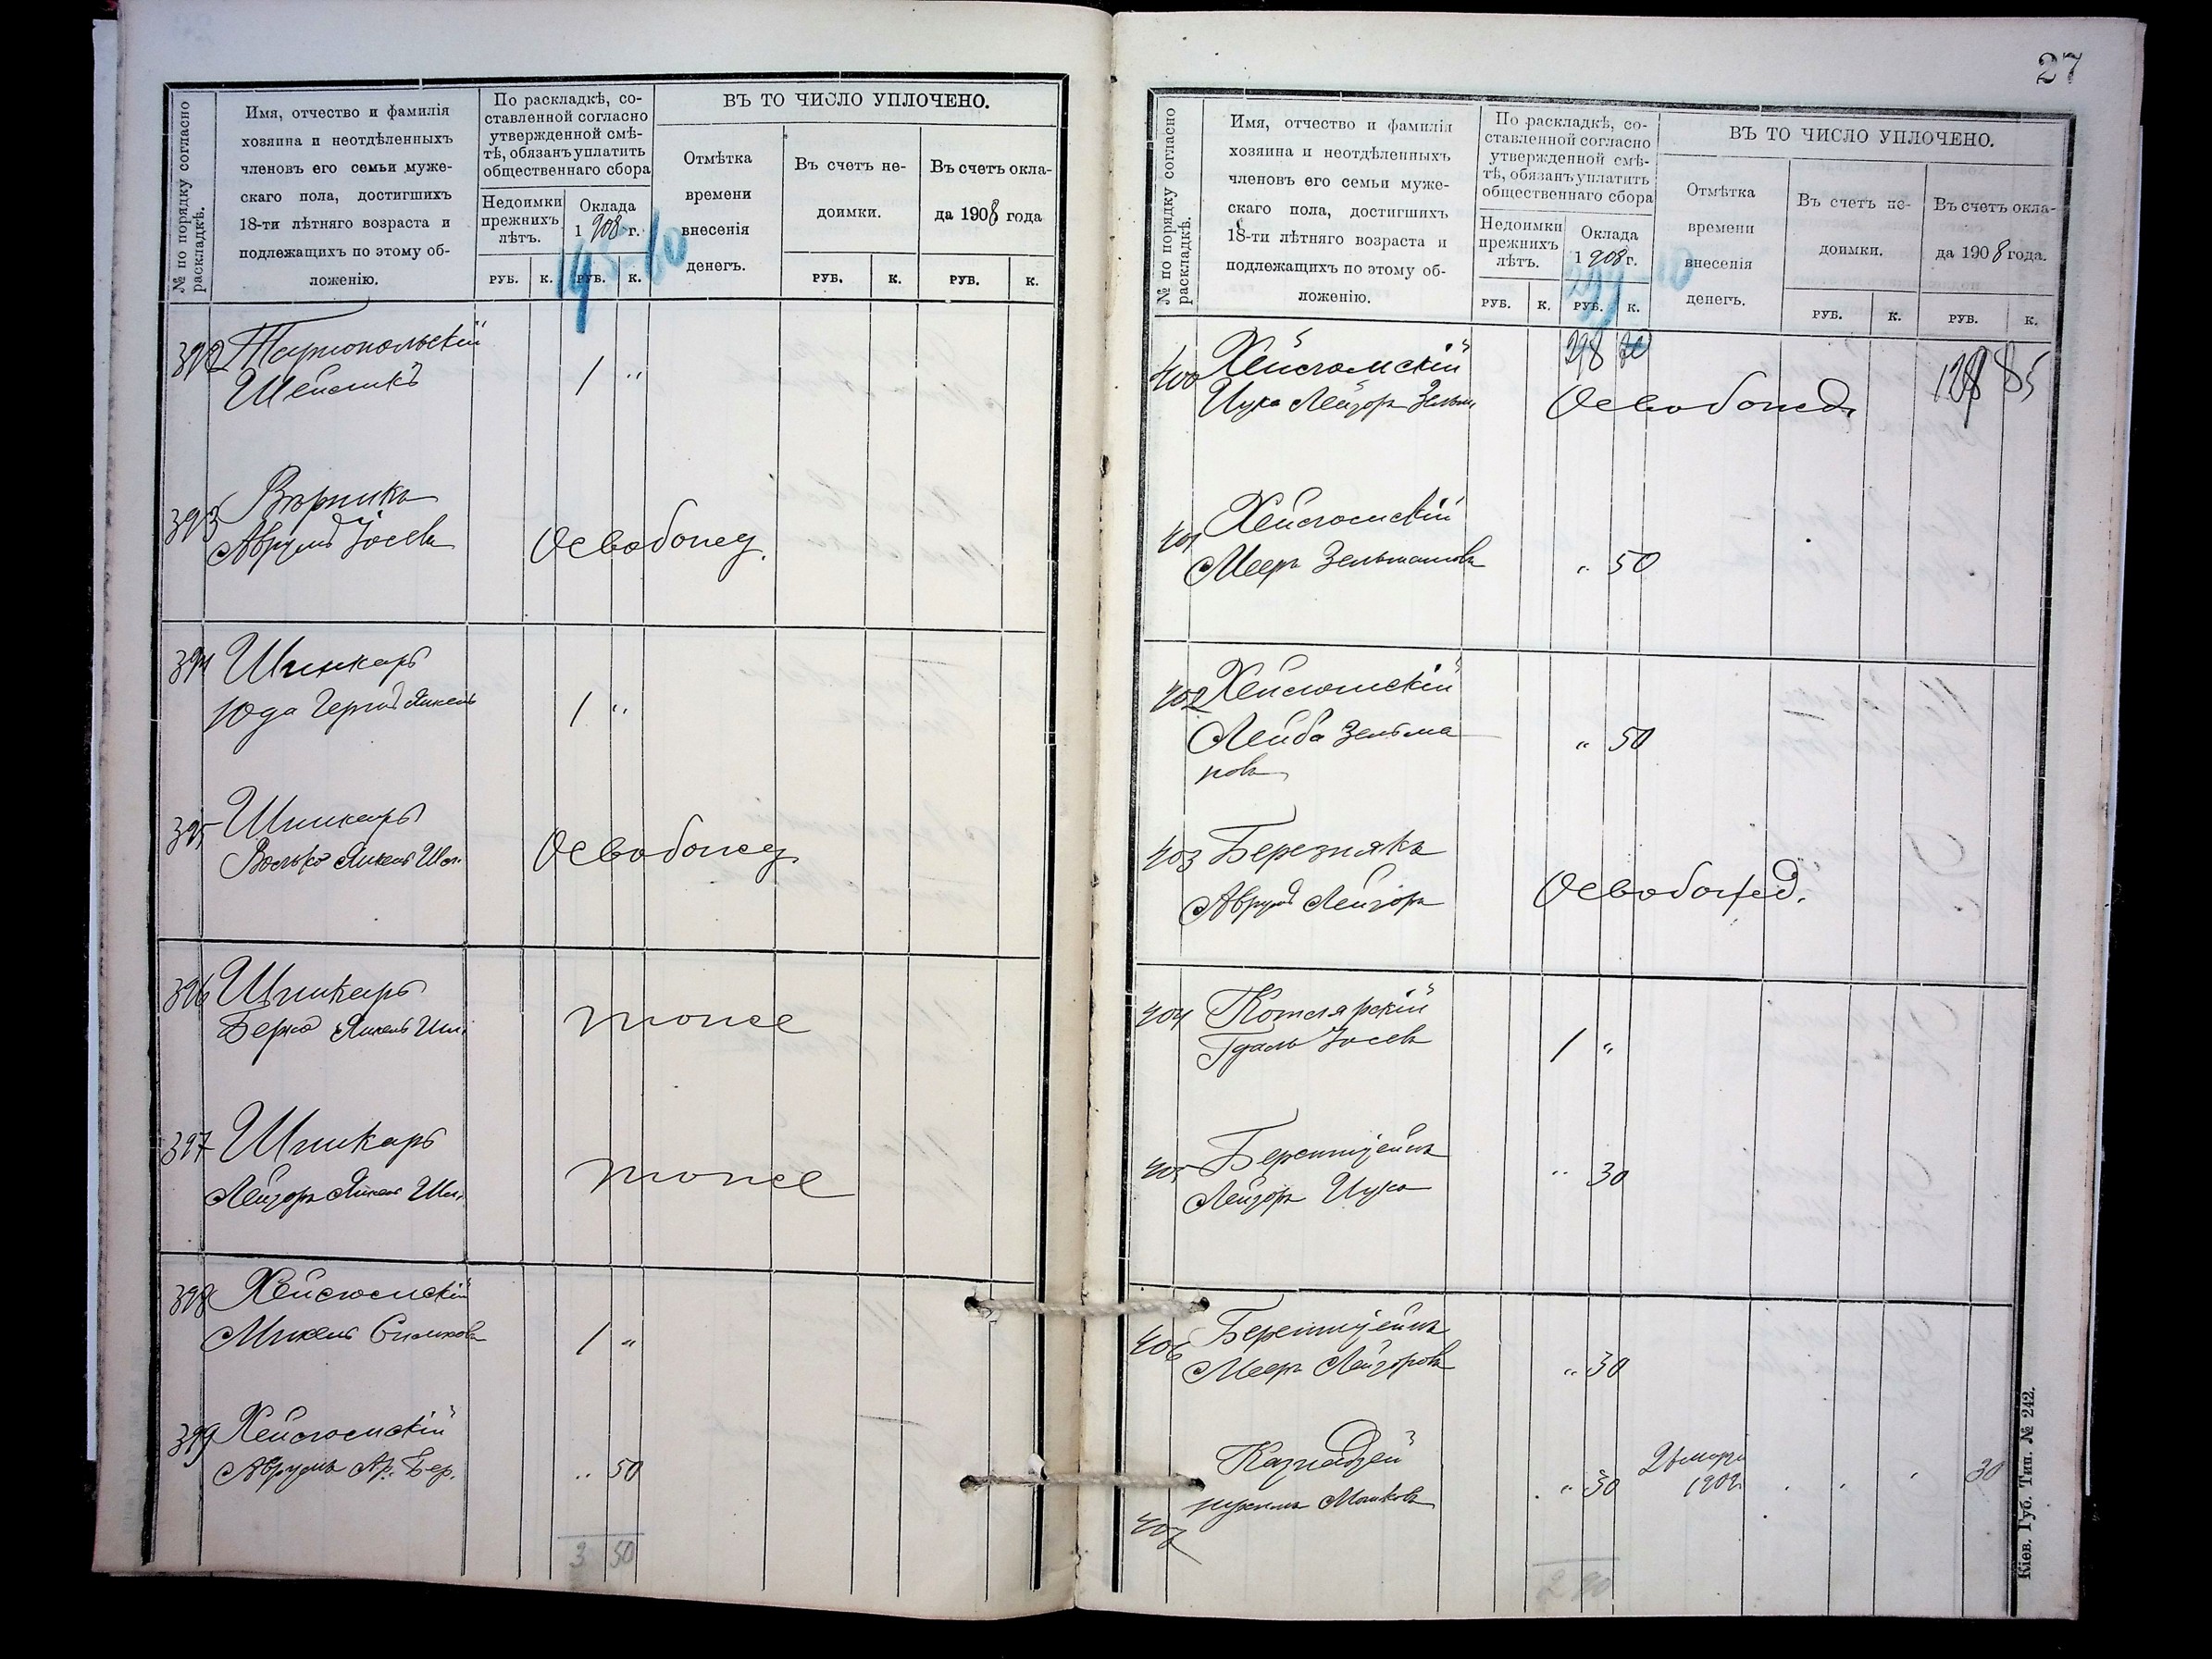 № по порядку согласно раскладкѣ.
Имя, отчество и фамилія
хозяина и неотдѣленныхъ
членовъ его семьи муже-
скаго пола, достигшихъ
18-ти лѣтняго возраста и
подлежащихъ по этому об-
ложенію.
По раскладкѣ, со-
ставленной согласно
утвержденной смѣ-
тѣ, обязанъ уплатить
общественнаго сбора
Недоимки
прежнихъ
лѣтъ.
РУБ. К.
Оклада
1908 г.
РУБ. К.
ВЪ ТО ЧИСЛО УПЛОЧЕНО.
Отмѣтка
времени
внесенія
денегъ.
Въ счетъ не-
доимки.
РУБ. К.
Въ счетъ окла-
да 1908 года
РУБ. К.
392
Шейликъ 1 "
393
Аврумъ Іосевъ Освобожд.
394 Шинкарь
Юда Гершъ 1 "
395 Шинкарь
Волько Янкель Освобожд.
396 Шинкарь
Берко Янкель тоже
397 Шинкарь
Лейзоръ Янкель тоже
398
1 "
399
Аврумъ Ар. Бер. " 50
3 50
27
№ по порядку согласно раскладкѣ.
Имя, отчество и фамилія
хозяина и неотдѣленныхъ
членовъ его семьи муже-
скаго пола, достигшихъ
18-ти лѣтняго возраста и
подлежащихъ по этому об-
ложенію.
По раскладкѣ, со-
ставленной согласно
утвержденной смѣ-
тѣ, обязанъ уплатить
общественнаго сбора
Недоимки
прежнихъ
лѣтъ.
РУБ. К.
Оклада
1908 г.
РУБ. К.
ВЪ ТО ЧИСЛО УПЛОЧЕНО.
Отмѣтка
времени
внесенія
денегъ.
Въ счетъ не-
доимки.
РУБ. К.
Въ счетъ окла-
да 1908 года.
РУБ. К.
400
Лейзоръ Освобожд.
401
Мееръ Зельмановъ " 50
402
Лейба Зельма
новъ " 50
403 Березнякъ
Аврумъ Лейзоръ Освобожд.
404 Котлярскій
Гдаль Іосевъ 1 "
405 Беренштейнъ
Лейзоръ " 30
406 Беренштейнъ
Мееръ Лейзоровъ " 30
407 Казнадзей
Мошковъ " 30 30
2 90
Кіев. Губ. Тип. № 242.